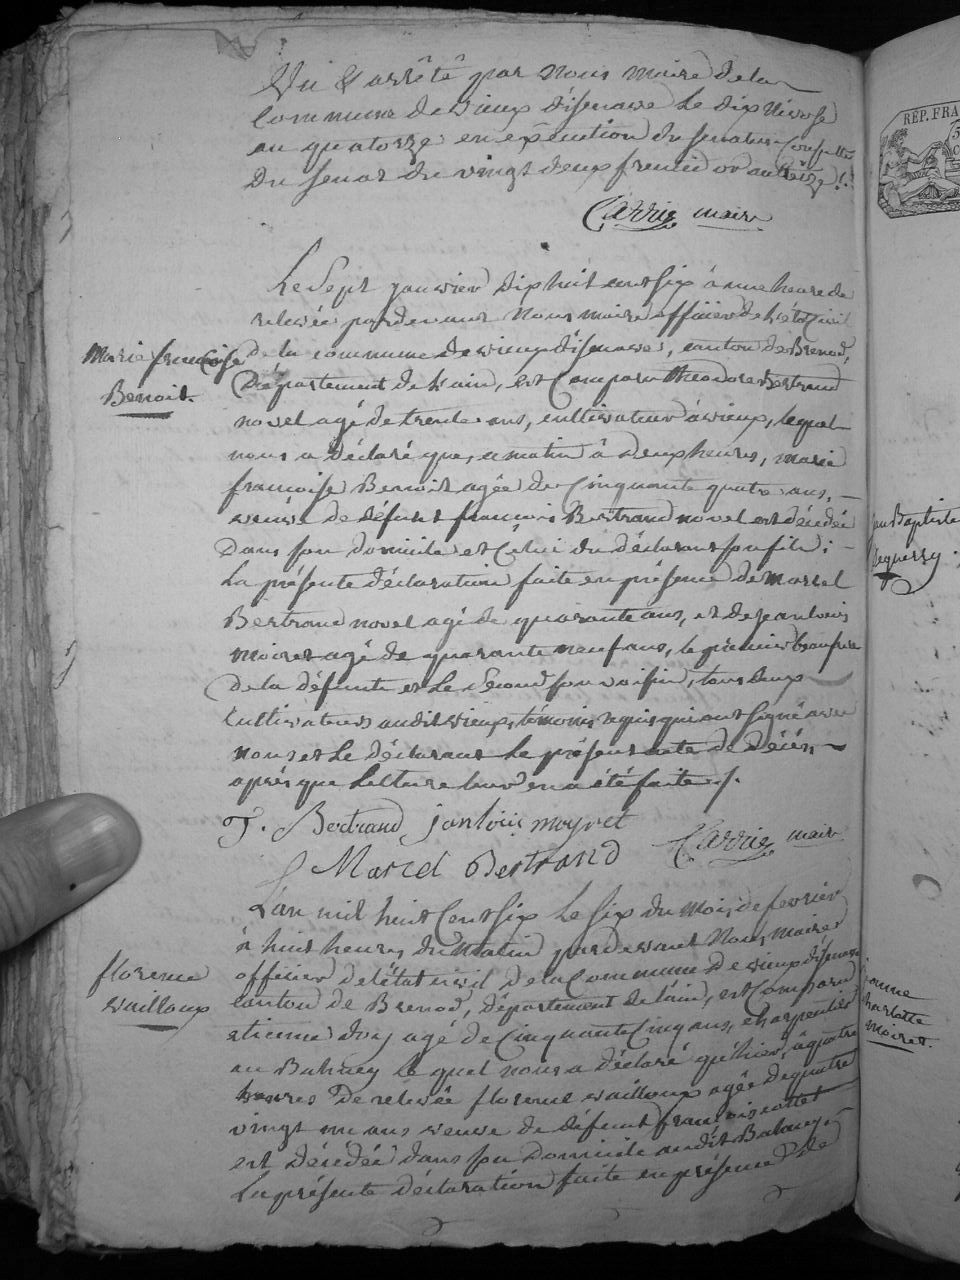 Vu & arrêté par nous maire de la
Commune de vieux d'isenave le dix Nivose
an quatorze en exécution du senatus-Consulte
Du senat du vingt deux fructidor an treize ./.
Carrig maire
Le Sept janvier dix huit cent six à une heure de
relevée pardevant Nous maire officier de l'état civil
Marie francoise
Benoit.
de la commune de vieux d'isenave, canton de Brenod,
Département de l'ain, est Comparu theodore Bertrand
novel agé de trente ans, cultivateur à vieux, lequel
nous a déclaré que, ce matin à deux heures, marie
francoise Benoit agée de Cinquante quatre ans,
veuve de défunt francois Bertrand novel est décédée
Dans son domicile et Celui du déclarant son fils ;
La présente déclaration faite en présence de marcel
Bertrand novel agé de quarante ans, et de jean louis
moiret agé de quarante neuf ans, le prémier beaufrere
de la défunte et le second son voisin, tous deux
Cultivateurs audit vieux, témoins requis qui ont signé avec
nous et le déclarant le présent acte de décès
après que lecture leur en a été faite ./.
T. Bertrand janlouis moyret
Marcel Bertrand Carrig maire
L'an mil huit Cent Six le six du mois de fevrier
à huit heures du Matin pardevant Nous maire
florence
vailloux
officier de l'état civil de la Commune De vieux d'isenave
Canton de Brenod, département de l'ain, est Comparu
etienne Augé de Cinquante Cinq ans, charpentier
au Balmey le quel nous a déclaré qu'hier, à quatre
heures De relevée florence vailloux agée de quatre
vingt un ans veuve de défunt francois
est décédée dans son Domicile audit Balmey ;
La présente déclaration faite en présence de
REP. FRA
jean Baptiste
jeanne
charlotte
Moiret.